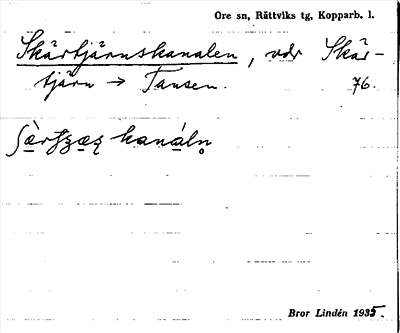 Ore sn, Rättviks tg, Kopparb. l.
Skärtjärnskanalen, vdr Skär-
tjärn → Tansen. 76.
kanáln̥
Bror Lindén 1935.